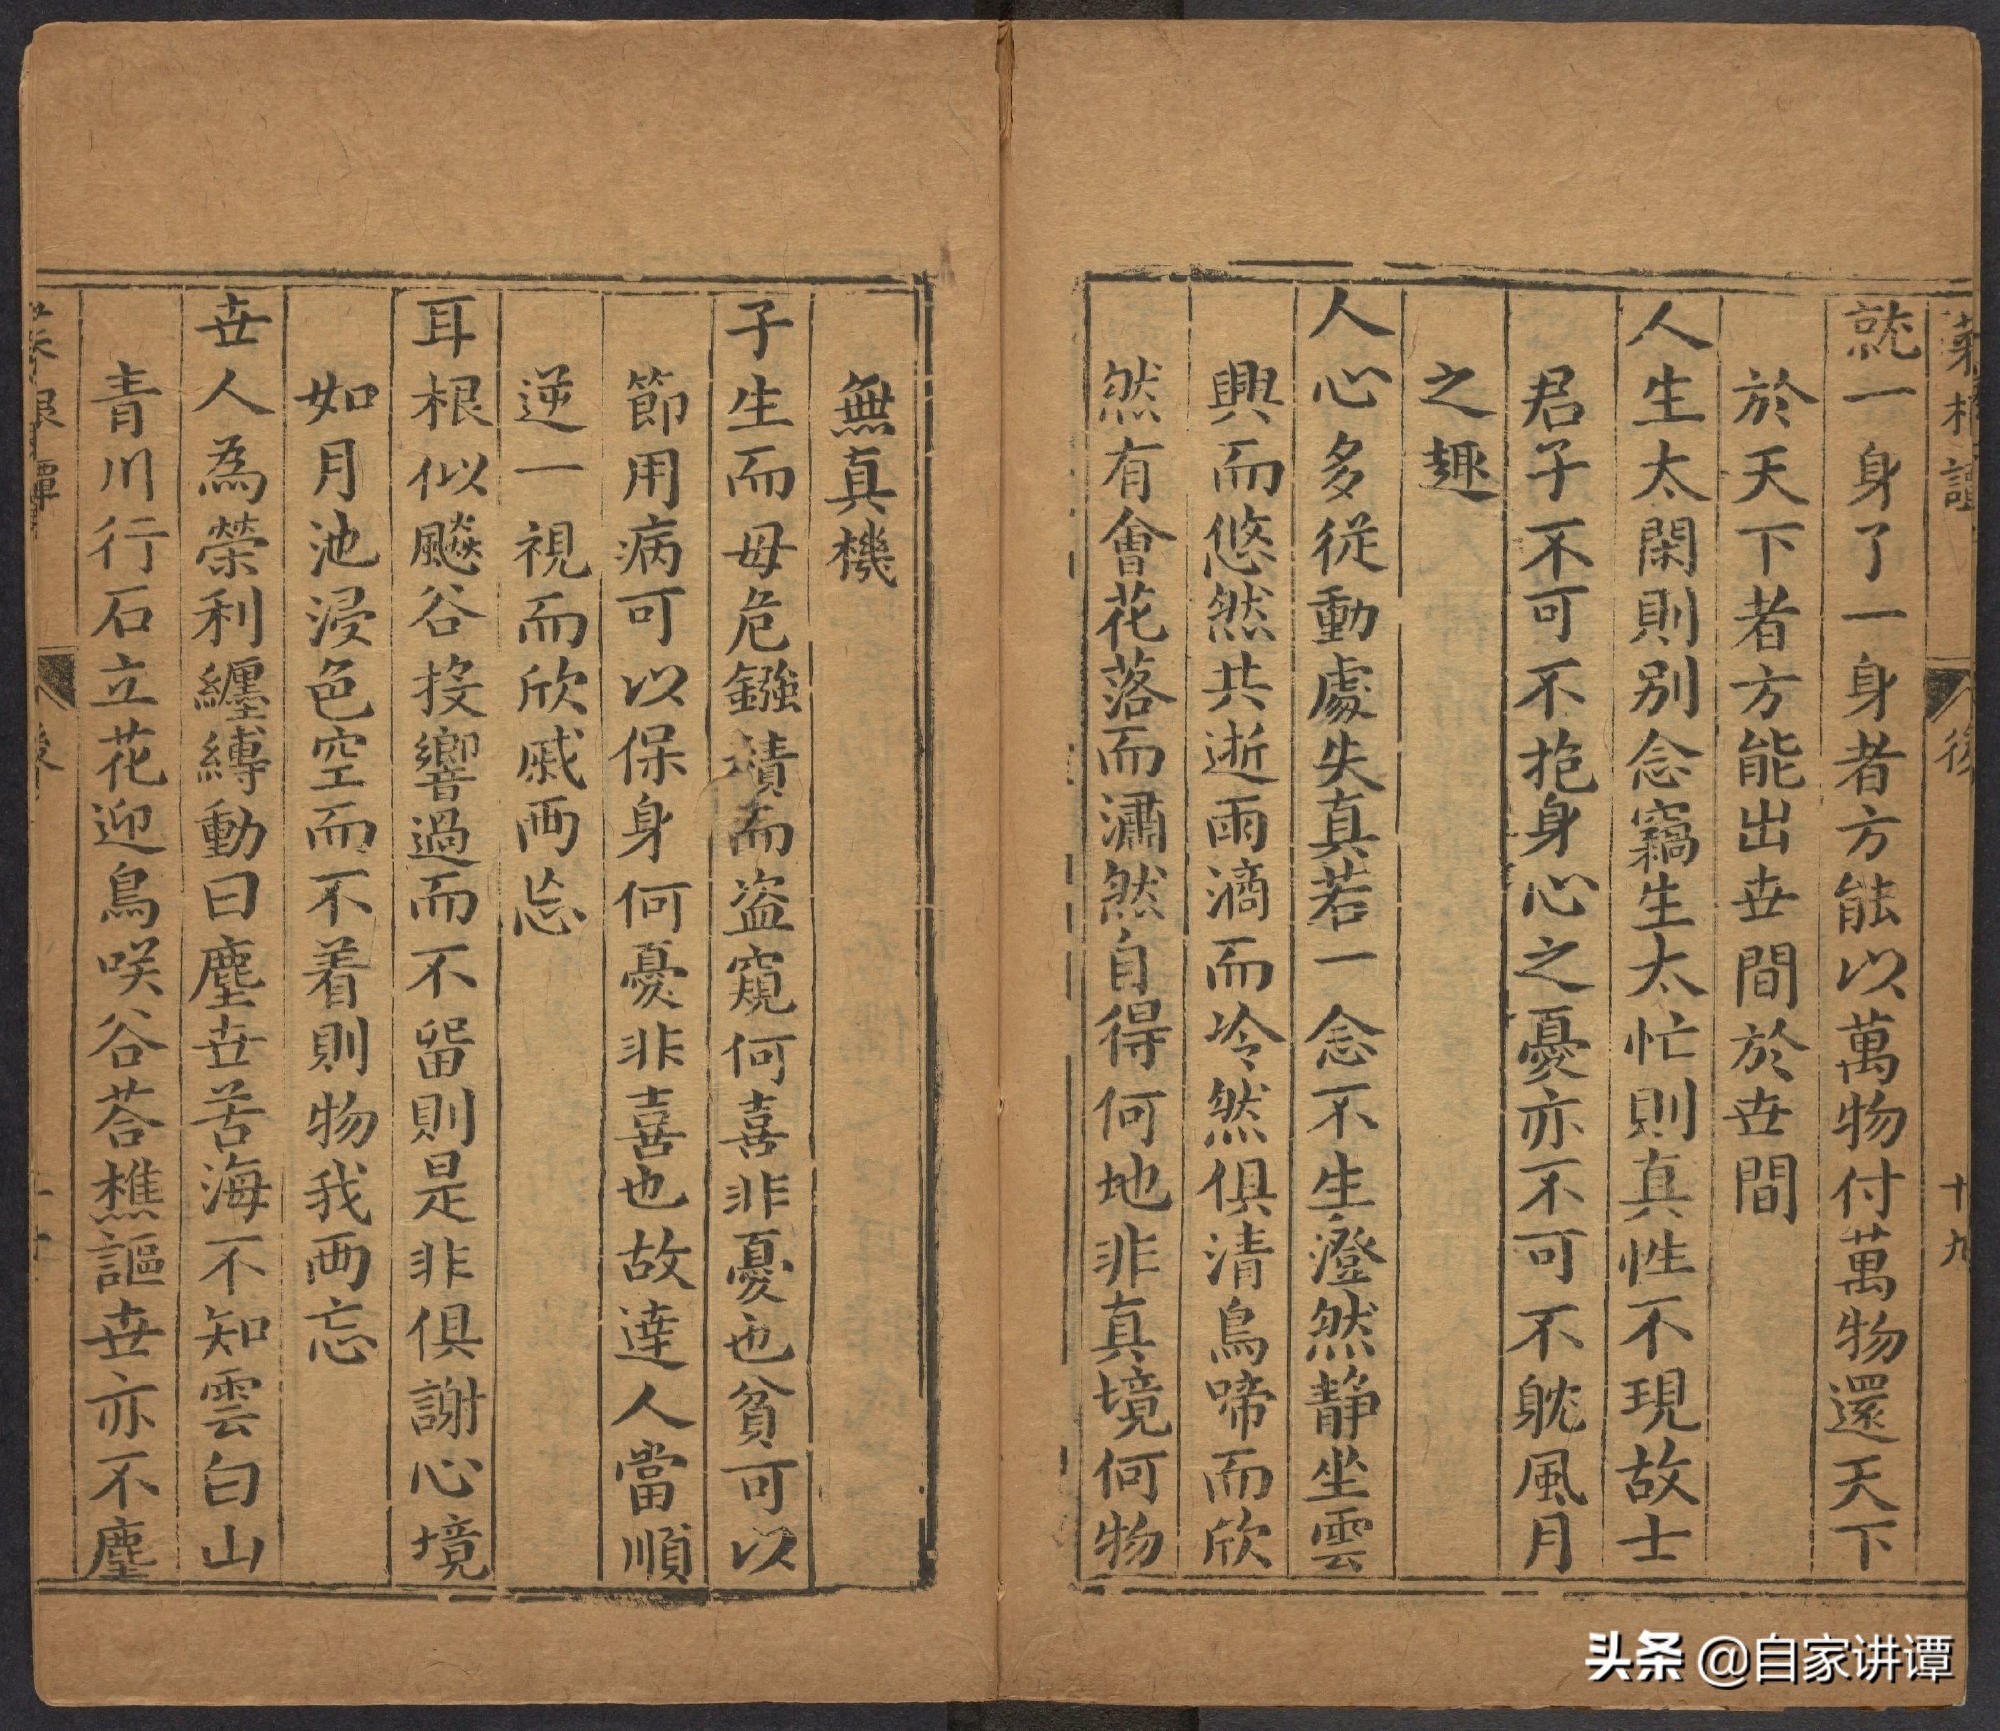 菜根譚 後 十九
就一身了一身者方能以萬物付萬物還天下
於天下者方能出世間於世間
人生太閑則別念竊生太忙則真性不現故士
君子不可不抱身心之憂亦不可不躭風月
之趣
人心多從動處失真若一念不生澄然静坐雲
興而悠然共逝雨滴而冷然俱清鳥啼而欣
然有會花落而瀟然自得何地非真境何物
無真機
子生而母危鏹積而盗窺何喜非憂也貧可以
節用病可以保身何憂非喜也故達人當順
逆一視而欣戚兩忘
耳根似飈谷投響過而不留則是非俱謝心境
如月池浸色空而不着則物我兩忘
世人為榮利纏縛動曰塵世苦海不知雲白山
青川行石立花迎鳥咲谷荅樵謳世亦不塵
根譚
头条 @自家讲谭